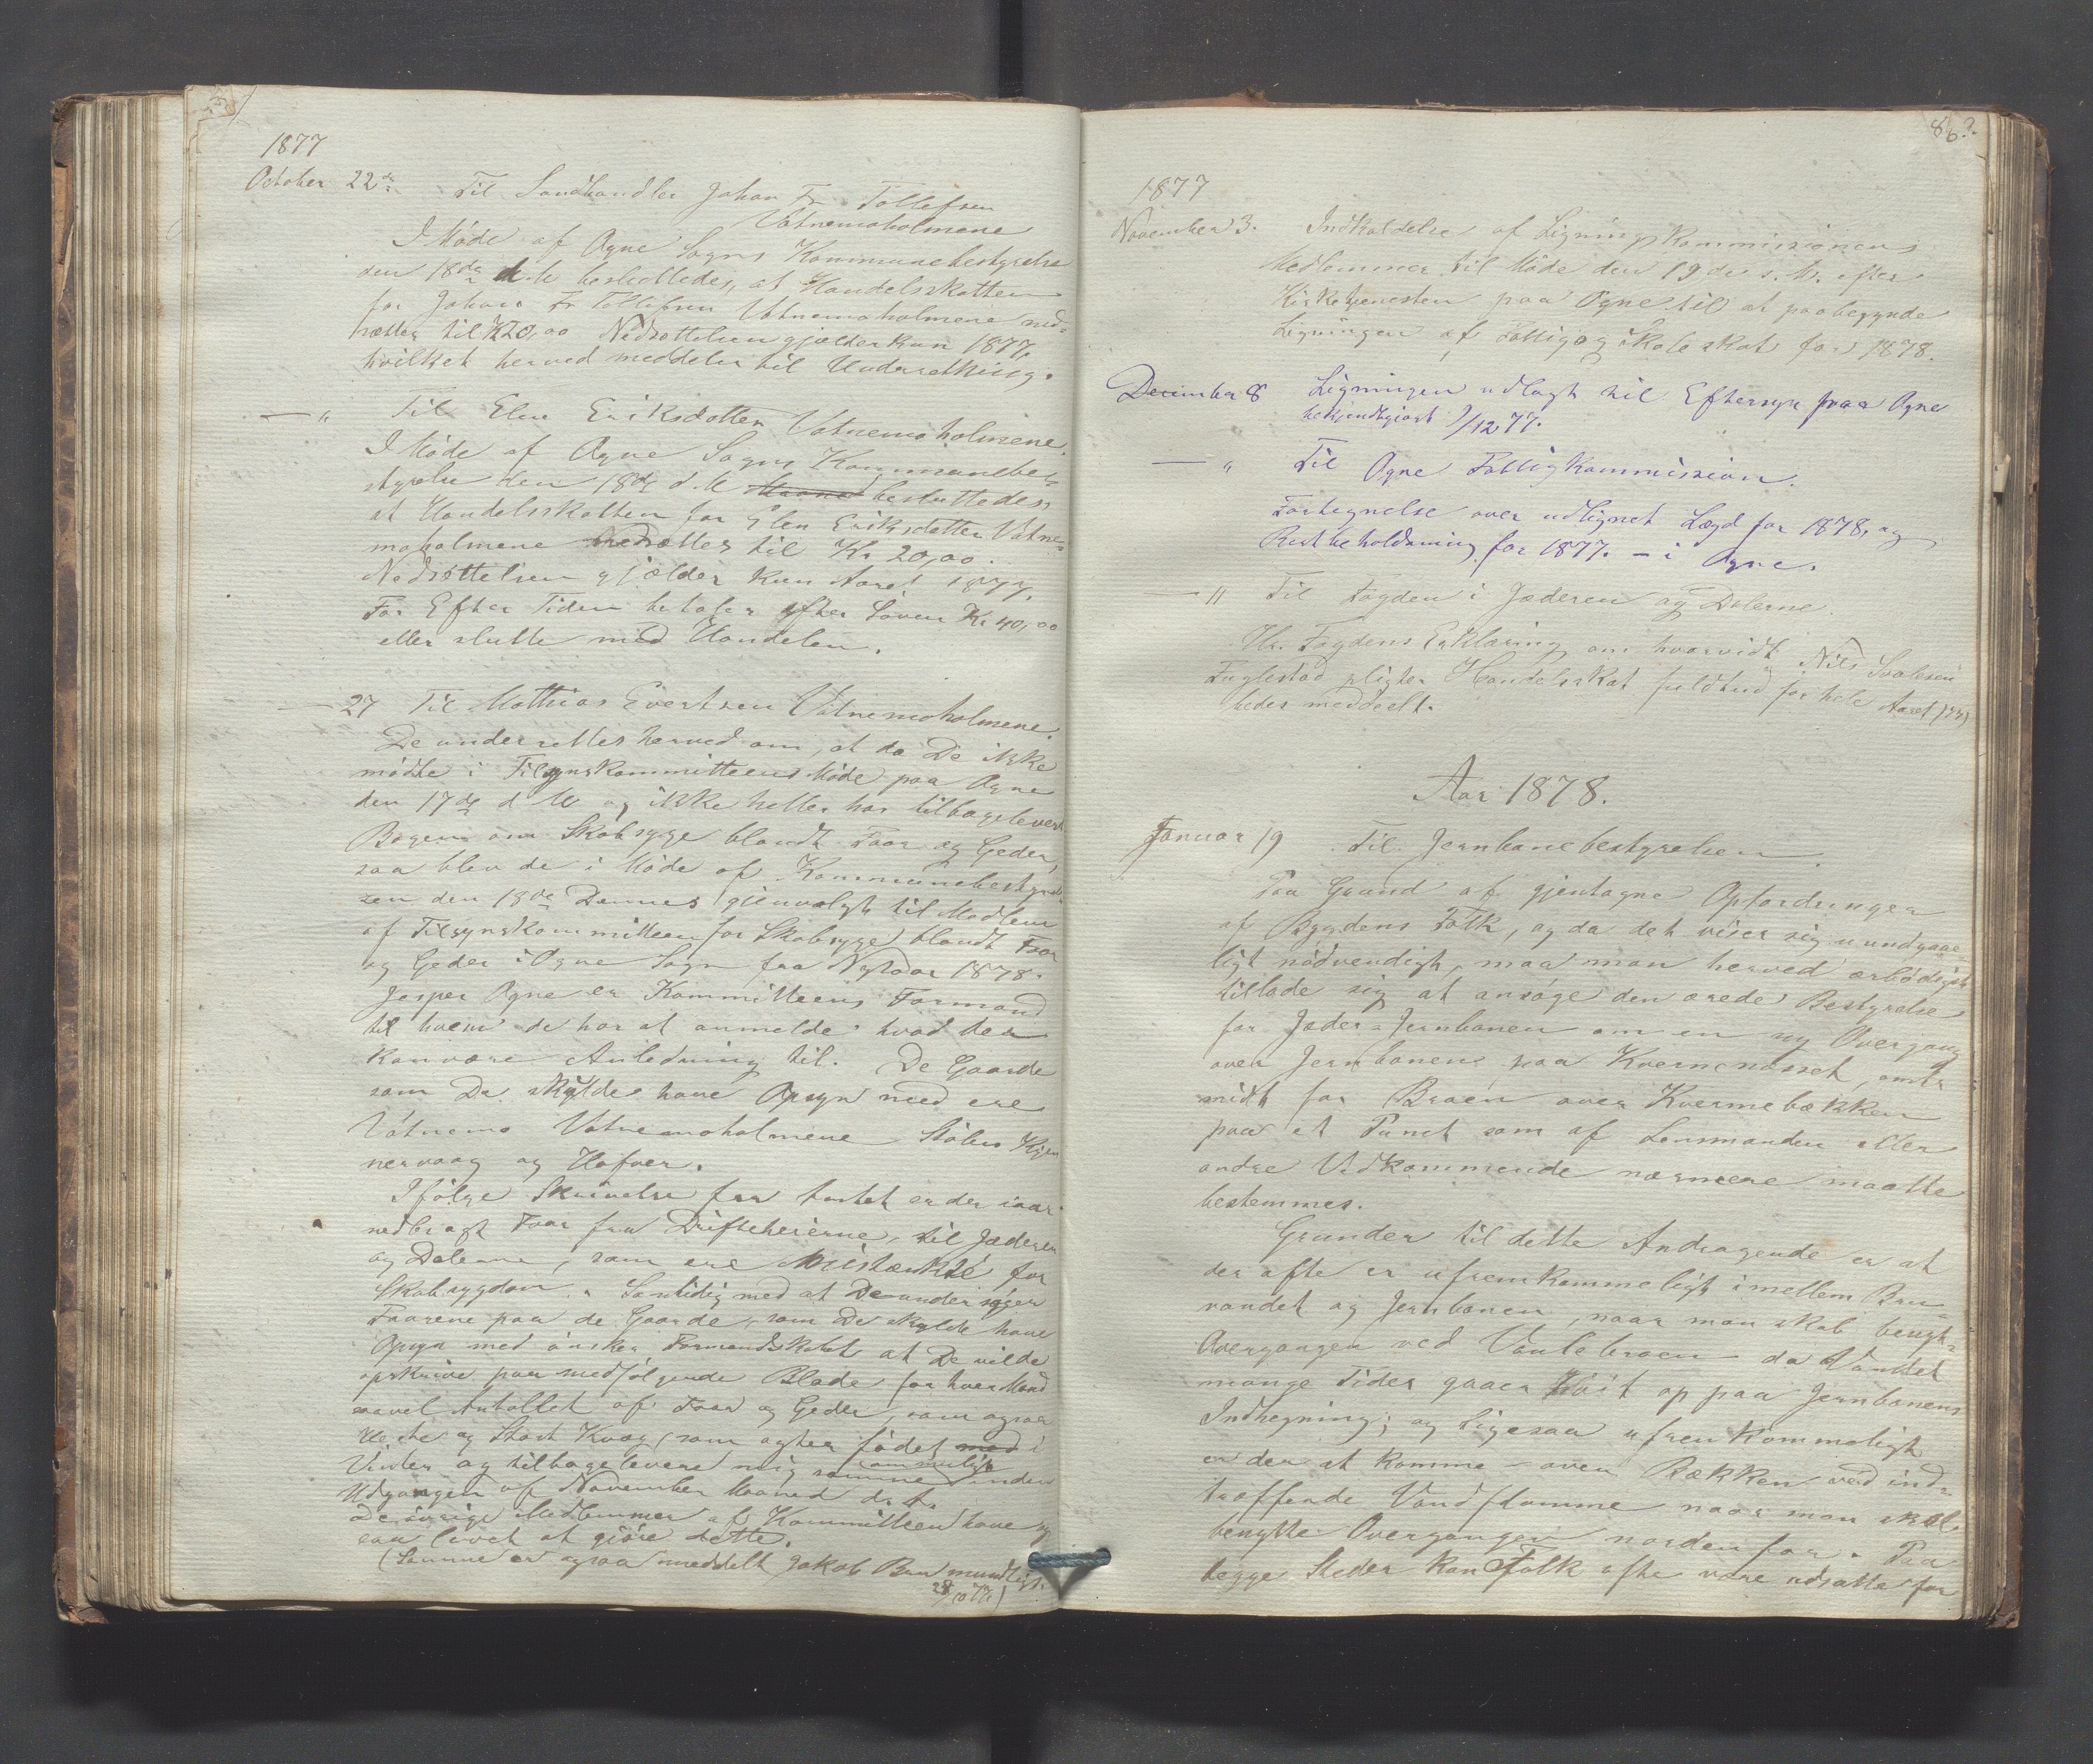 1877
October 22de Til Landhandler Johan Fr. Tollefsen
Vatnemoholmene
I Møde af Ogne Sogns Kommunebestyrelse
den 18de d. M. besluttedes, at Handelsskatten
for Johan Fr Tollefsen Vatnemoholmene ned-
sættes til K20,00 Nedsættelsen gjælder kun 1877,
hvilket herved meddeles til Underretning.
— " Til Elen Eriksdatter Vatnemoholmene.
I Møde af Ogne Sogns Kommunebe-
styrelse den 18de d. M. Maaned besluttedes,
at Handelsskatten for Elen Eriksdatter Vatne-
moholmene nedsættes til Kr 20,00.
Nedsættelsen gjælder kun Aaret 1877.
For Efter Tiden betales efter Loven Kr 40,00
eller slutte med Handelen.
— 27 Til Mathias Evertsen Vatnemoholmene.
De underrettes herved om, at da De ikke
mødte i Tilsynskommitteens Møde paa Ogne
den 17de d. M. og ikke heller har tilbageleveret
Bogen om Skabsyge blandt Faar og Geder,
saa blev de i Møde af Kommunebestyrel-
sen den 18de Dennes gjenvalgt til Medlem
af Tilsynskommitteen for Skabsyge blandt Faar
og Geder i Ogne Sogn fra Nytaar 1878.
Jasper Ogne er Kommitteens Formand
til hvem de har at anmelde hvad der
kan være Anledning til. De Gaarde
som De skulde have Opsyn med ere
Vatnemo Vatnemoholmene Stølen Kjen
nervaag og Hafver.
Ifølge Skrivelse fra Amtet er der iaar
nedbragt Faar fra Drifteheierne, til Jæderen
og Dalerne, som ere Mistænkte for
Skabsygdom. Samtidig med at De undersøger
Faarene paa de Gaarde, som De skulde have
Opsyn med ønsker Formandskabet at De vilde
opskrive paa medfølgende Blade for hver Mand
saavel Antallet af Faar og Geder, som ogsaa
Heste og Stort Kvæg (som agtes fødet med i
Vinter og tilbagelevere mig samme inden
Udgangen af November Maaned d. A.
De øvrige Medlemmer af Kommitteen have og
saa lovet at gjøre dette.
(Samme er ogsaa meddelt Jakob Bru mundtligt.
28/10 77.)
86.
1877
November 3. Indkaldelse af Ligningskommissionens
Medlemmer til Møde den 19de s. M. efter
Kirketjenesten paa Ogne til at paabegynde
Ligningen af Fattig og Skoleskat for 1878.
December 8 Ligningen udlagt til Eftersyn paa Ogne
bekjendtgjort 9/12 77.
— " Til Ogne Fattigkommission.
Fortegnelse over udlignet Lægd for 1878, og
Restbeholdning for 1877. – i Ogne.
— " Til Fogden i Jæderen og Dalerne.
Hr. Fogdens Erklæring om hvorvidt Nils Svalesen
Fuglestad pligter Handelsskat fuldtud for hele Aaret (77)
bedes meddeelt.
Aar 1878.
Januar 19 Til Jernbanebestyrelsen.
Paa Grund af gjentagne Opfordringer
af Bygdens Folk, og da det viser sig uundgaae-
ligt nødvendigt, maa man herved ærbødigst
tillade sig at ansøge den ærede Bestyrelse
for Jæder-Jernbanen om en ny Overgang
over Jernbanen paa Kvernenæsset, omtr
midt for Broen over Kvernebækken
paa et Punct som af Lensmanden eller
andre Vedkommende nærmere maatte
bestemmes.
Grunden til dette Andragende er at
der ofte er ufremkommeligt imellem Bru-
vandet og Jernbanen, naar man skal benyt-
Overgangen ved Vaulebroen da Vandet
mange Tider gaaer høit op paa Jernbanens
Indhegning; og ligesaa ufremkommeligt
er der at komme over Bækken ved ind-
træffende Vandflomme naar man skal
benytte Overgangen nordenfor. Paa
begge Steder kan Folk ofte være udsatte for